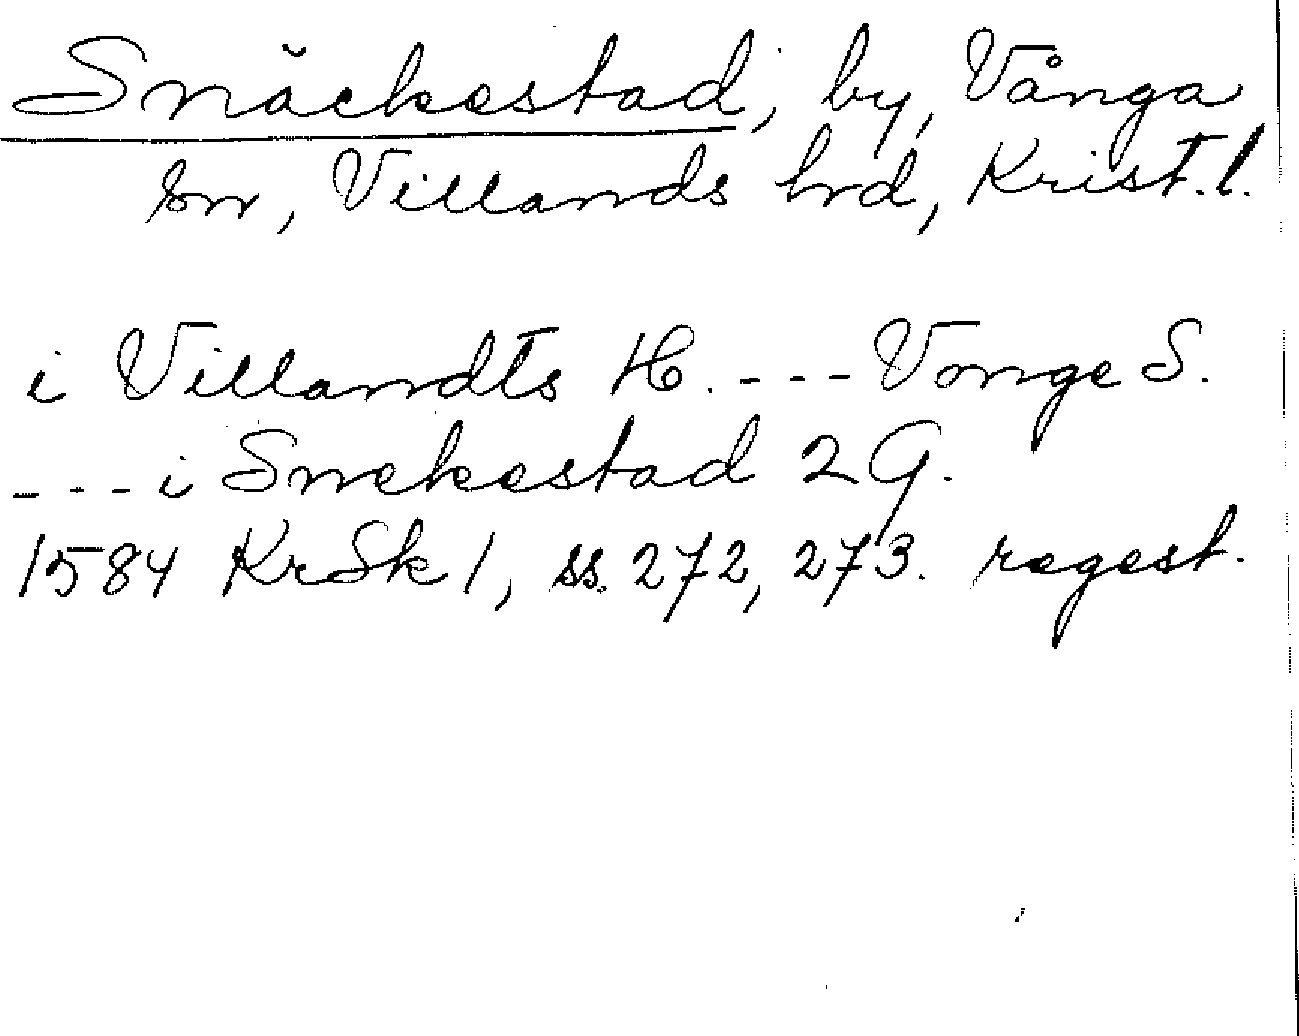 Snäckestad, by, Vånga
sn, Villands hrd, Krist. l.
i Villandts H. ---- Vonge S.
---- i Snekestad 2 G.
1584 KrSk 1, ss. 272, 273. regest.